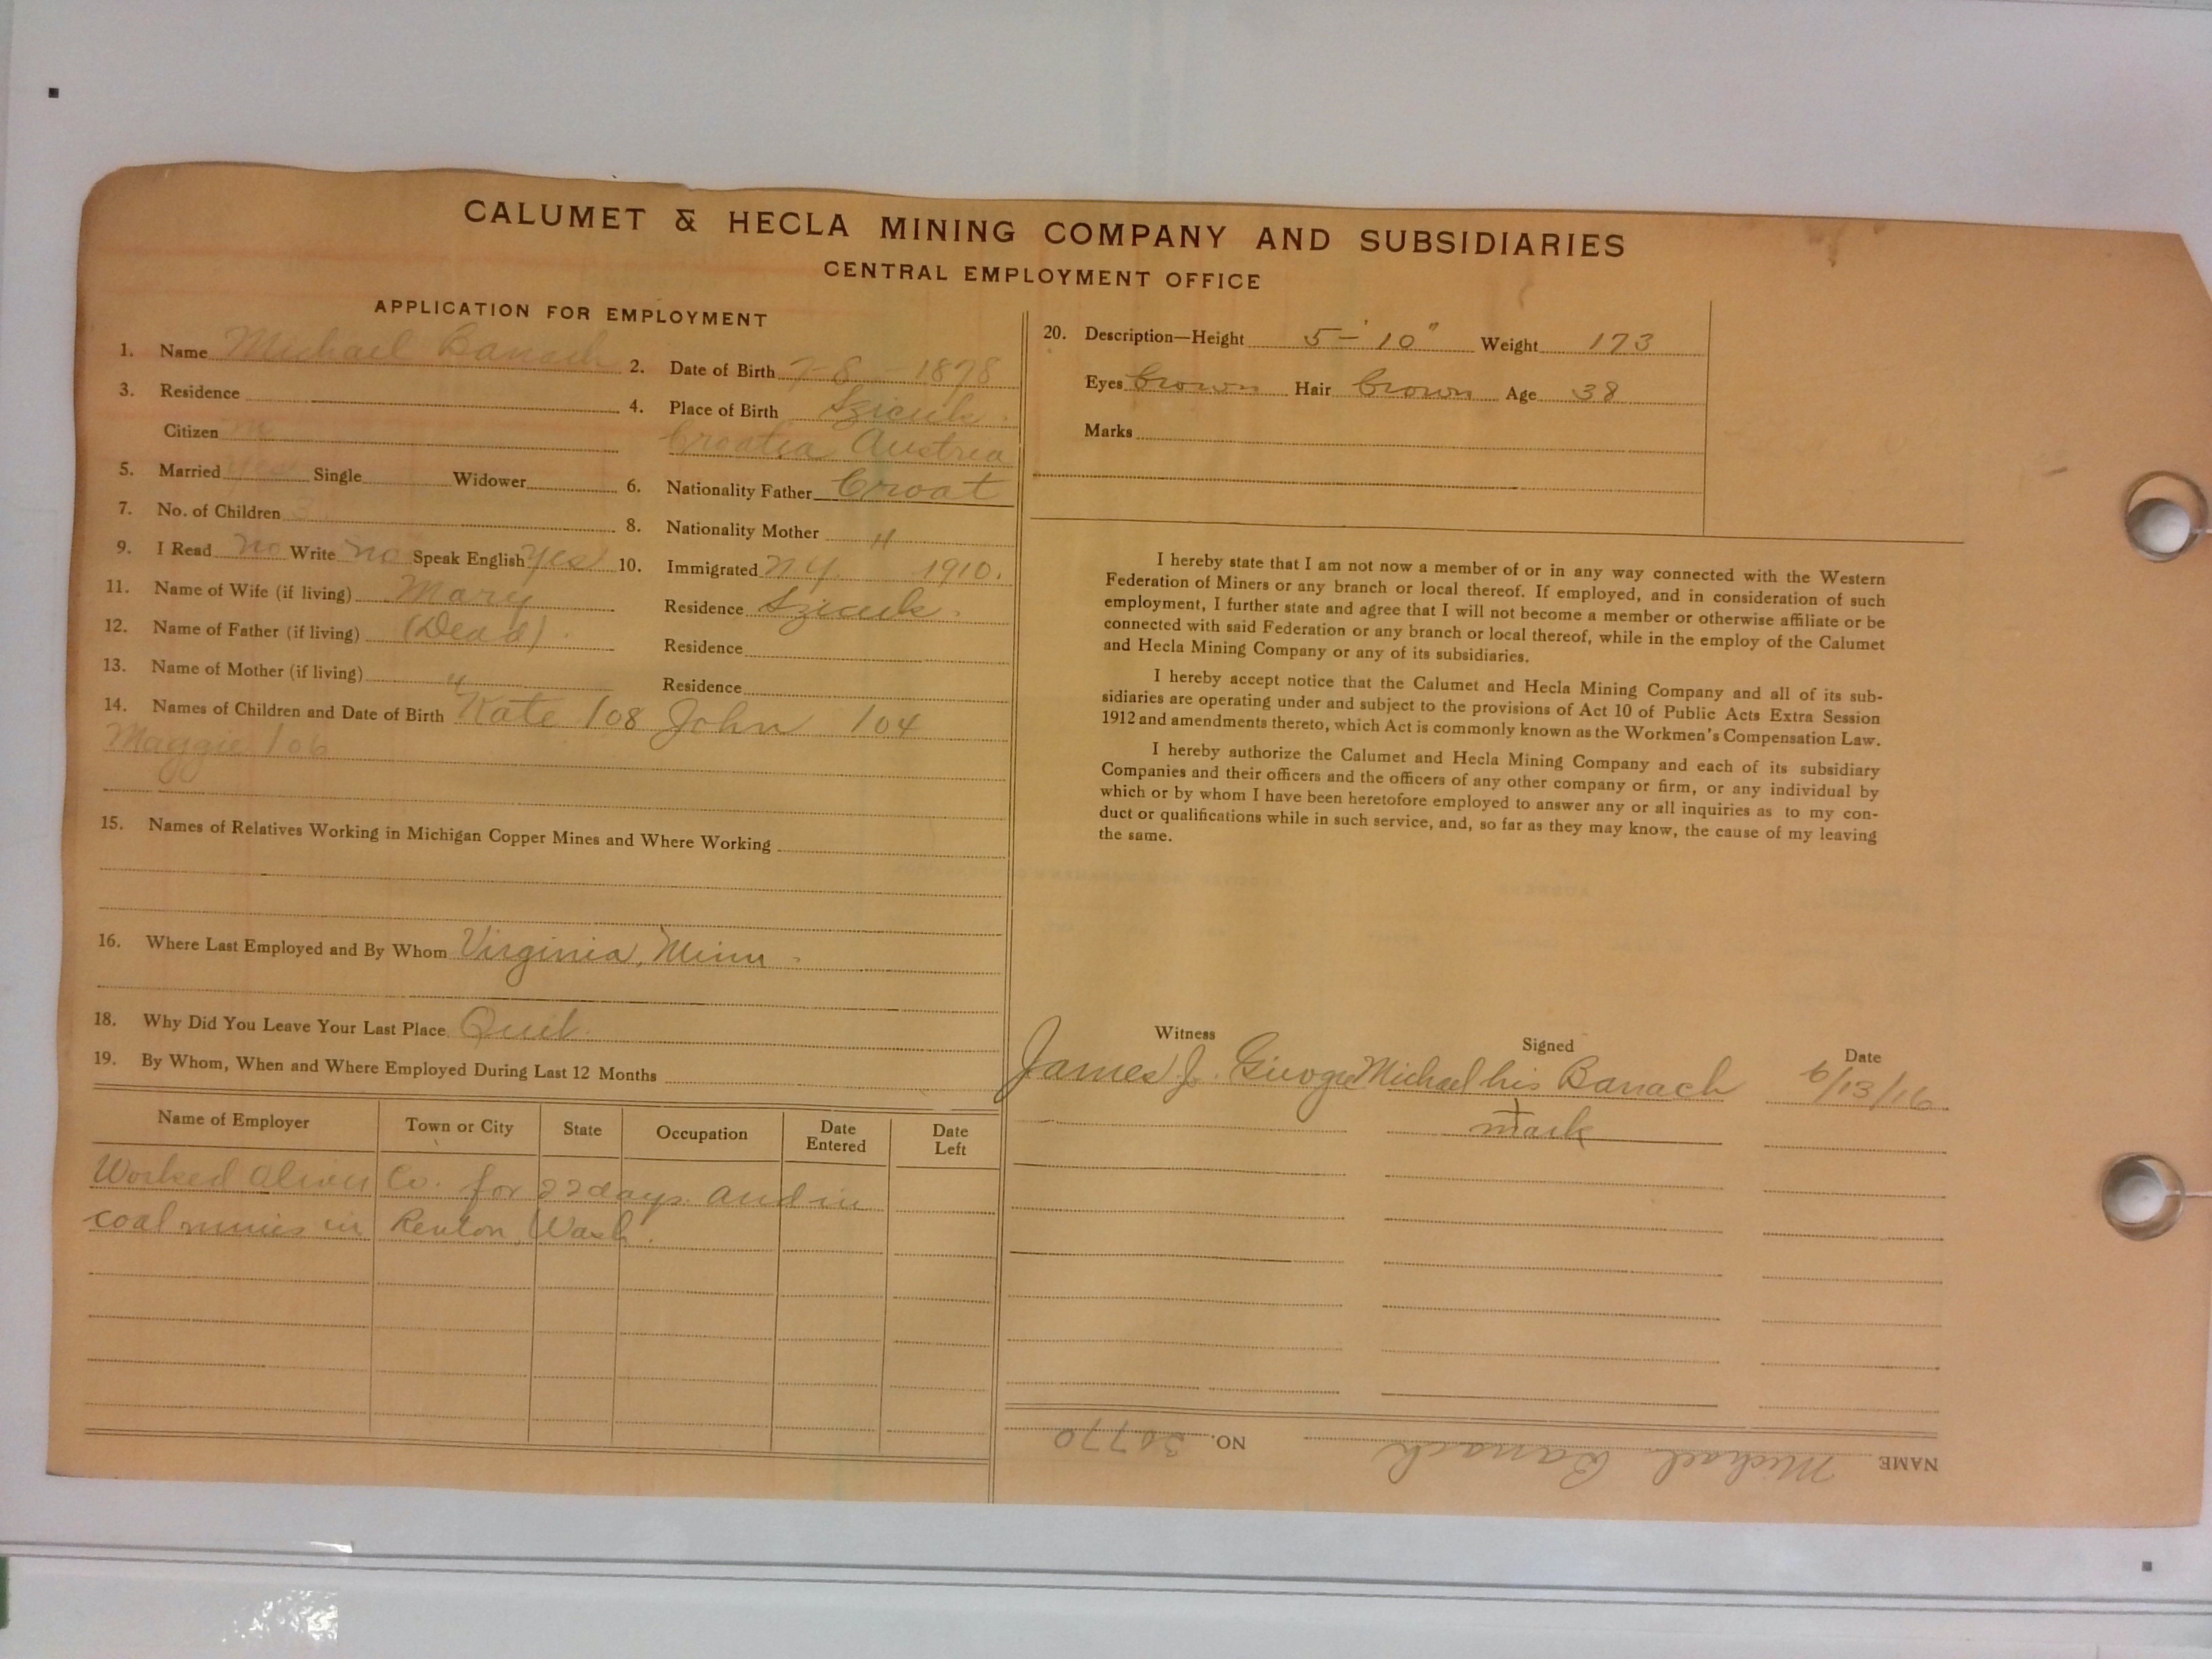 CALUMET & HECLA MINING COMPANY AND SUBSIDIARIES
CENTRAL EMPLOYMENT OFFICE
APPLICATION FOR EMPLOYMENT
1. Name Michael Banach
2. Date of Birth 7-8-1878
3. Residence
4. Place of Birth
Croatia Austria
Citizen no
5. Married yes Single Widower
6. Nationality Father Croat
7. No. of Children 3
8. Nationality Mother "
9. I Read no Write no Speak English yes
10. Immigrated N.Y. 1910.
11. Name of Wife (if living) Mary Residence
12. Name of Father (if living) (Dead) Residence
13. Name of Mother (if living) " Residence
14. Names of Children and Date of Birth Kate /08 John /04
Maggie /06
15. Names of Relatives Working in Michigan Copper Mines and Where Working
16. Where Last Employed and By Whom Virginia, Minn
18. Why Did You Leave Your Last Place Quit.
19. By Whom, When and Where Employed During Last 12 Months
Name of Employer Town or City State Occupation Date Entered Date Left
Worked Oliver Co. for 22 days and in
coal mines in Renton, Wash.
20. Description—Height 5-'10" Weight 173
Eyes brown Hair brown Age 38
Marks
I hereby state that I am not now a member of or in any way connected with the Western
Federation of Miners or any branch or local thereof. If employed, and in consideration of such
employment, I further state and agree that I will not become a member or otherwise affiliate or be
connected with said Federation or any branch or local thereof, while in the employ of the Calumet
and Hecla Mining Company or any of its subsidiaries.
I hereby accept notice that the Calumet and Hecla Mining Company and all of its sub-
sidiaries are operating under and subject to the provisions of Act 10 of Public Acts Extra Session
1912 and amendments thereto, which Act is commonly known as the Workmen's Compensation Law.
I hereby authorize the Calumet and Hecla Mining Company and each of its subsidiary
Companies and their officers and the officers of any other company or firm, or any individual by
which or by whom I have been heretofore employed to answer any or all inquiries as to my con-
duct or qualifications while in such service, and, so far as they may know, the cause of my leaving
the same.
Witness Signed Date
James J. Michael his Banach 6/13/16
mark
NAME Michael Banach NO. 30770